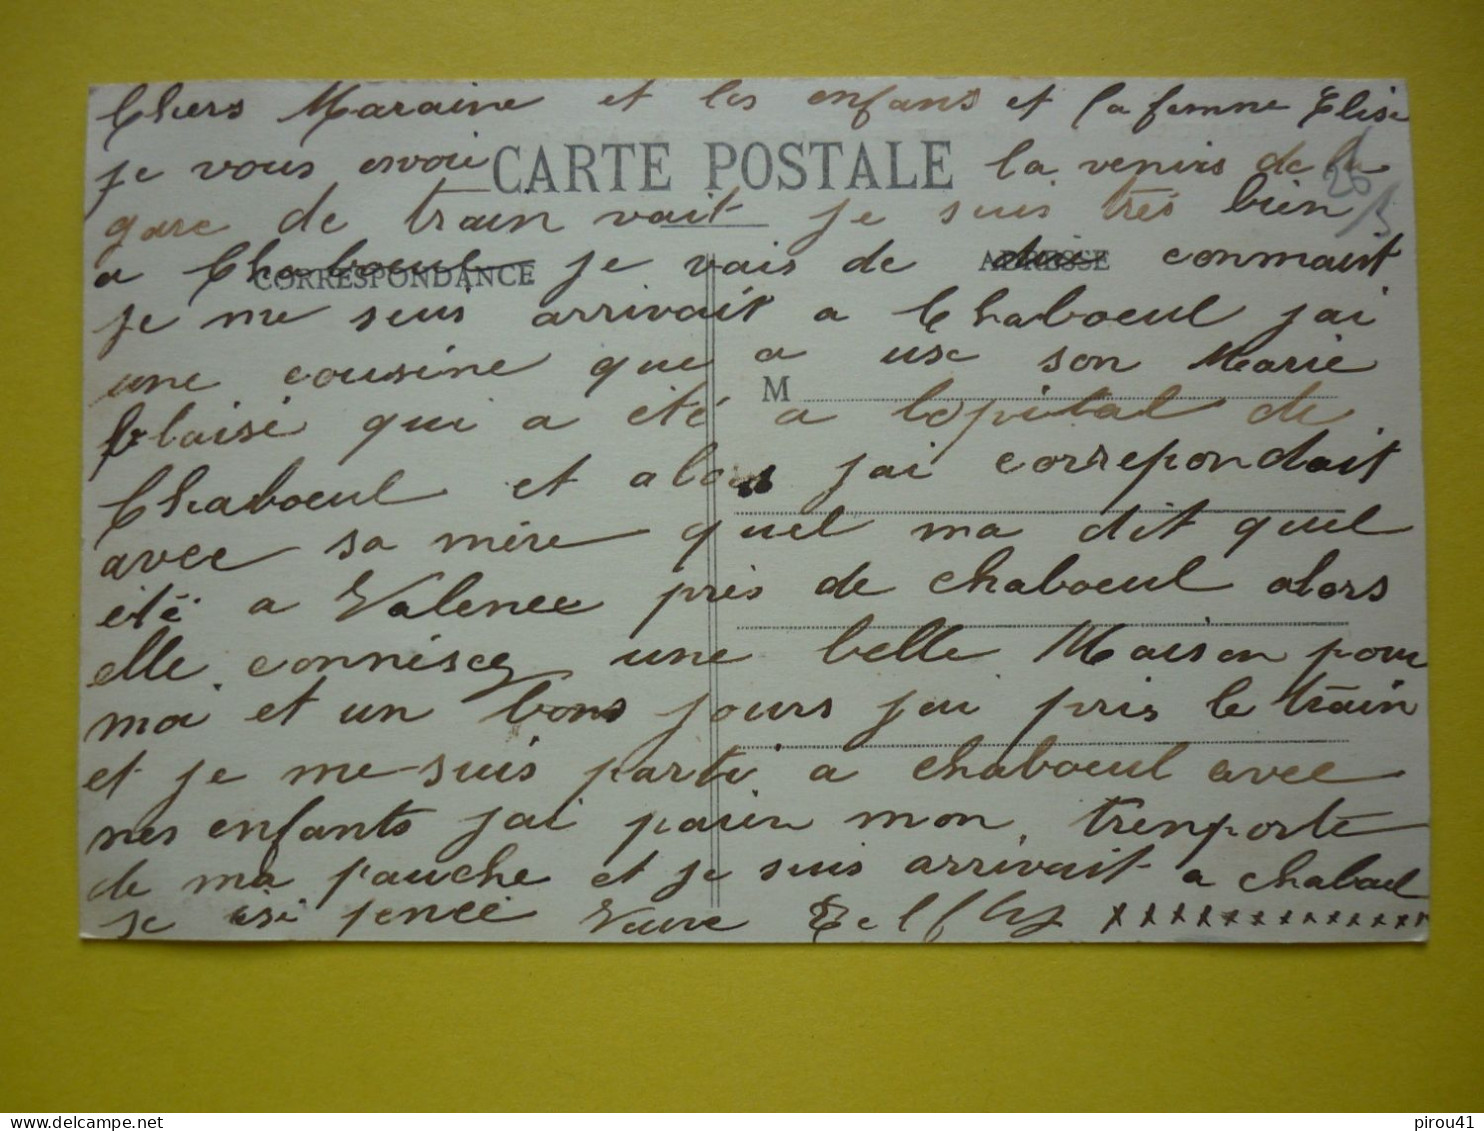 Chers Maraine et les enfans et la femme Elise
je vous envoie CARTE POSTALE la venirs de la
gare de train vait je suis très bien
a Chaboeul je vais de dire conmant
CORRESPONDANCE ADRESSE
je me suis arrivait a Chaboeul jai
une cousine que a use son Marie
M
Blaisé qui a été a lopital de
Chaboeul et alors jai correpondait
avec sa mère quel ma dit quil
été a Valence près de chaboeul alors
elle conniseq une belle Maison pour
moi et un bons jours jai pris le train
et je me suis parti a chaboeul avec
mes enfants jai paien mon trenporte
de ma pauche et je suis arrivait a chaboeul
je
26/3
pirou41